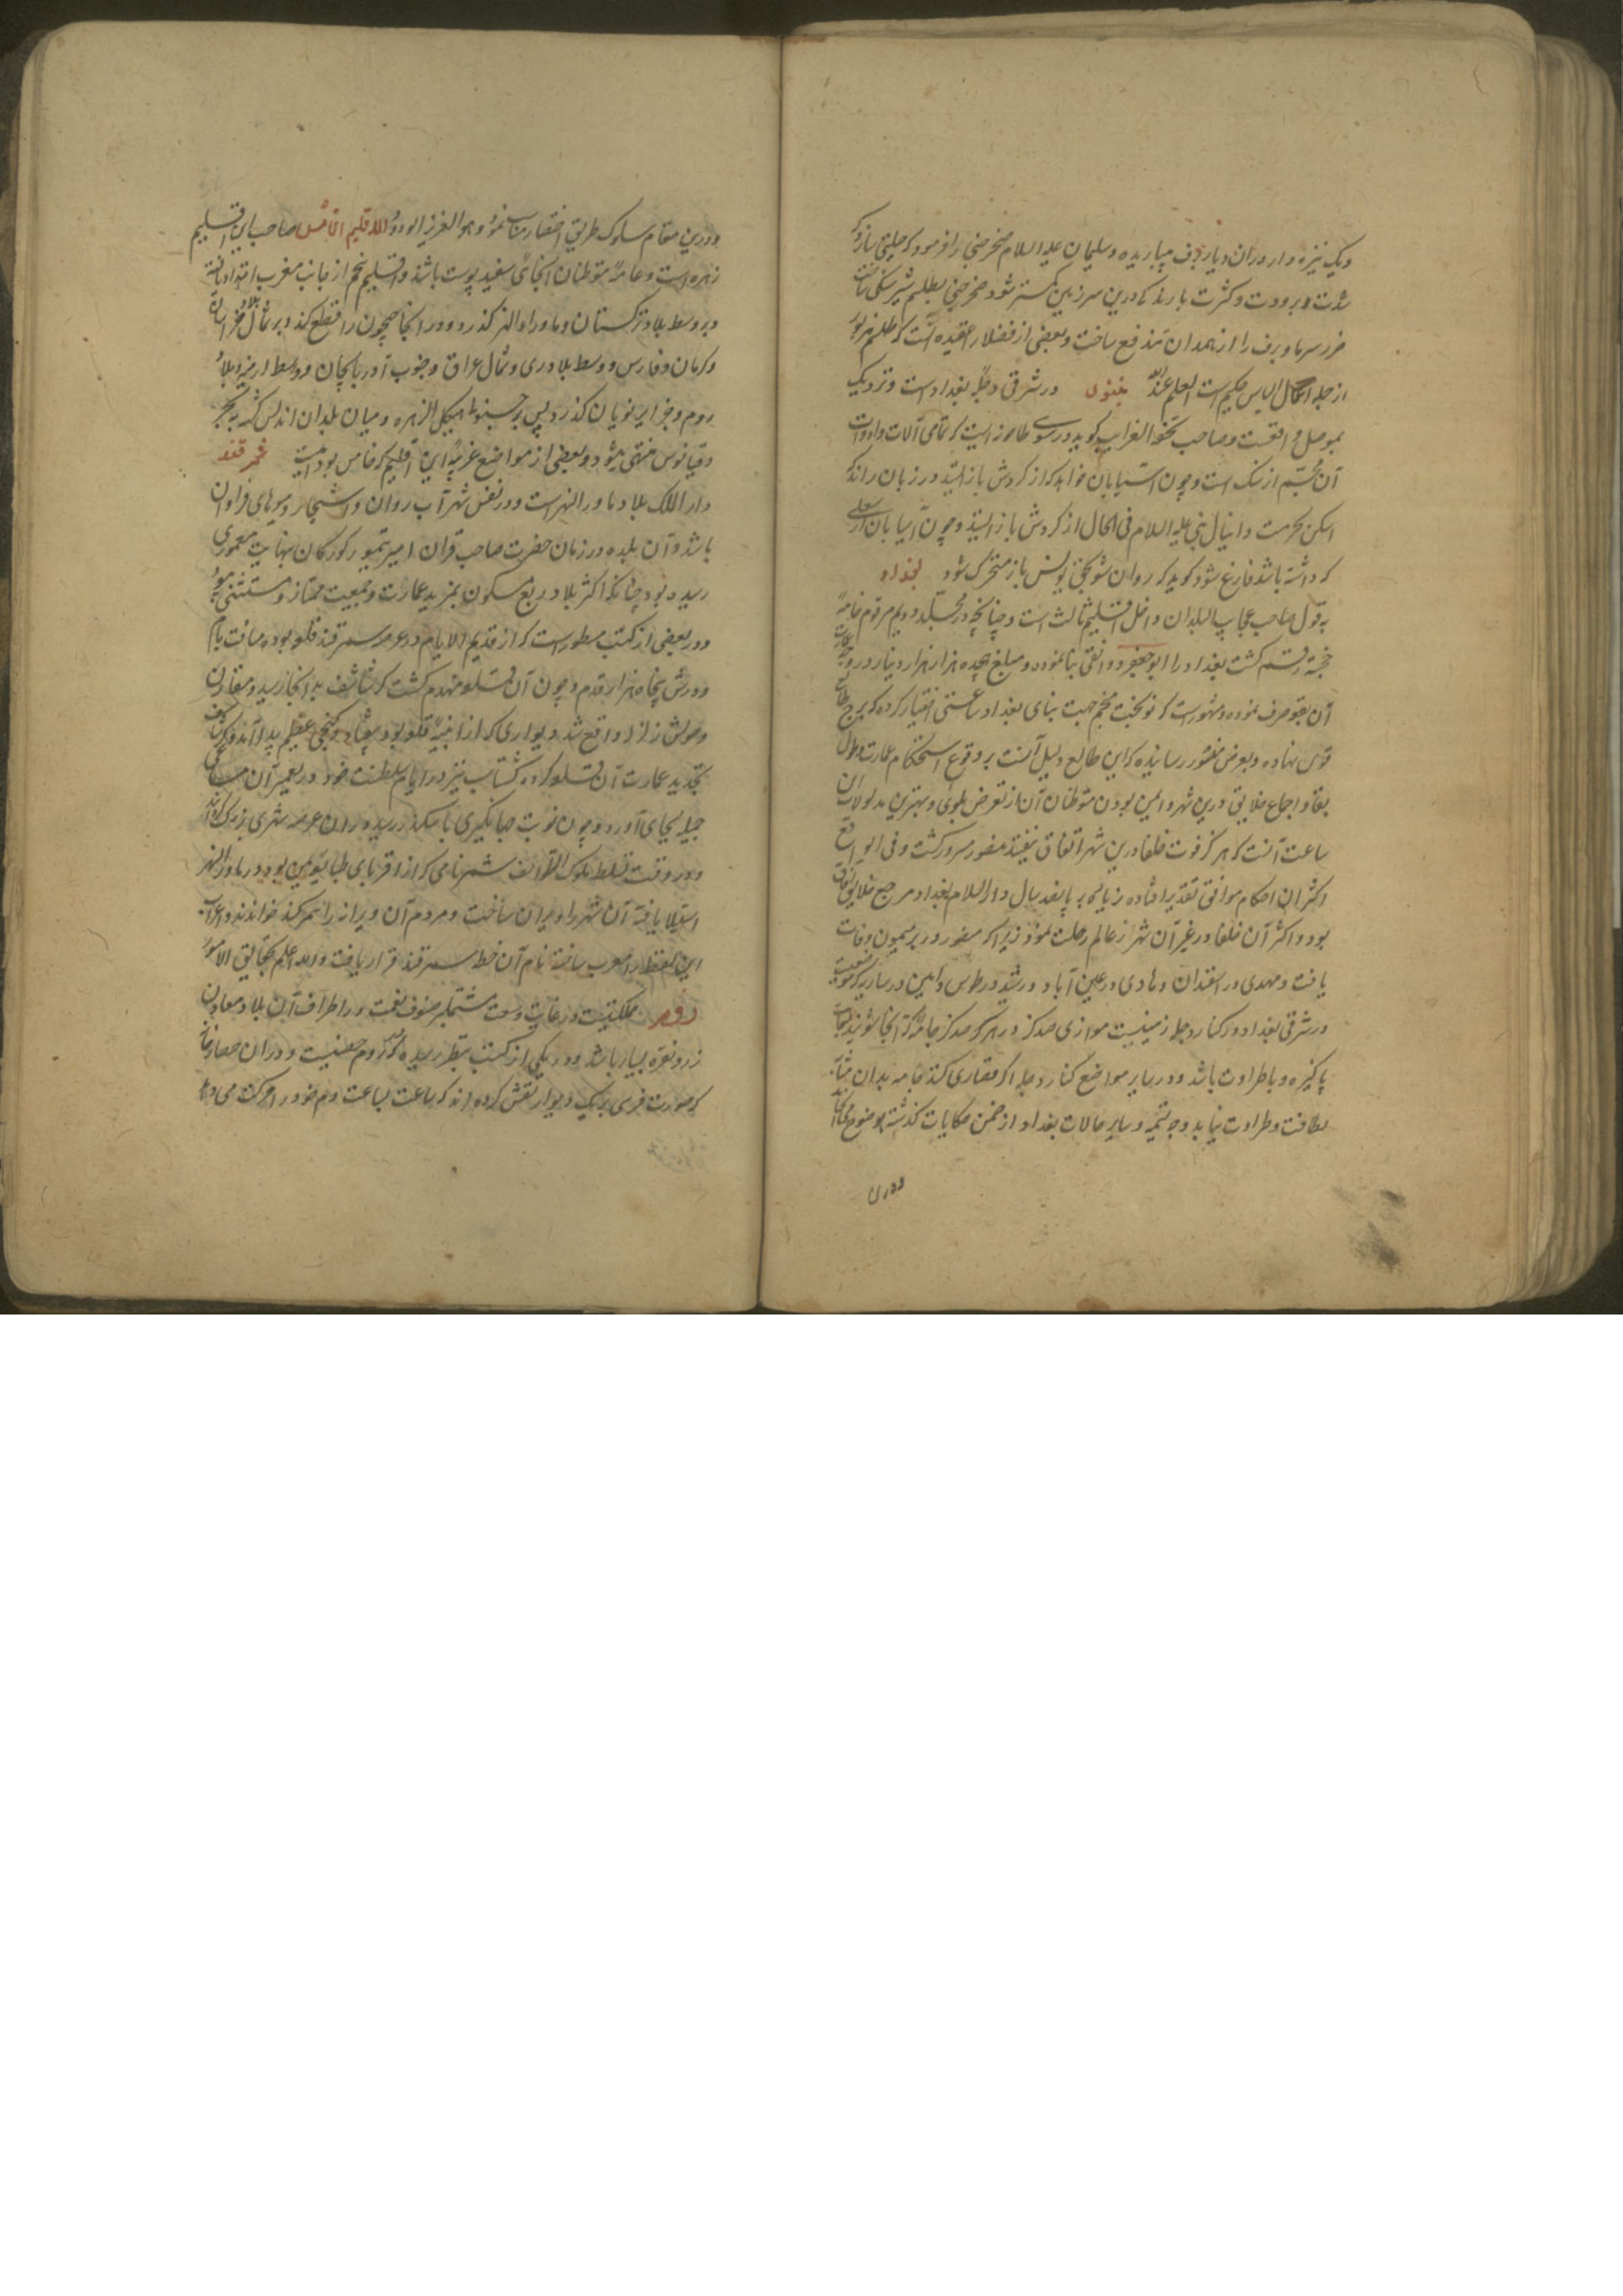 ویک نیزه وار دران دیار برف میباریده و سلیمان علیه السلام صخر جنی را فرمود که حیلتی سازد که
شدت برودت و کثرت بارندکی درین سرزمین کمتر شود صخر جنی بطلسم شیر سنکی
ضرر سرما و برف را از همدان مندفع ساخت و بعضی از فضلا را عقیده آنست که طلسم مزبور
از جمله اعمال بلیناس حکیم است العلم عند الله نینوی در شرقی دجله بغداد است و نزدیک
بموصل واقعست و صاحب تحفة الغرایب کوید در طاحونه ایست که تمامی آلات و ادوات
آن مجسم از سنک است و چون آسیابان خواهد که از کردش باز ایستد در زبان راند که
اسکن بحرمت دانیال نبی علیه السلام فی الحال از کردش باز ایستد و چون آسیابان از
که داشته باشد فارغ شود کوید که روان شو بحق یونس باز متحرک شود بغداد
به قول صاحب عجایب البلدان داخل اقلیم ثالث است و چنانچه در مجلد دویم مرقوم خامه
خجسته رقم کشت بغداد را ابو جعفر دوانقی بنا نموده و مبلغ هجده هزار هزار دینار در وجه
آن بقعه صرف نموده و مشهور است که نوبخت منجم جهت بنای بغداد ساعتی اختیار کرده که برج
قوس نهاده و بعرض منصور رسانیده که این طالع دلیل آنست بر وقوع استحکام عمارت و طول
بقا و اجماع خلایق درین شهر و ایمن بودن متوطنان آن از تعرض بلوی و بهترین مدلولات این
ساعت آنست که هرکز فوت خلفا درین شهر اتفاق نیفتد منصور مسرور کشت و فی الواقع
اکثر آن احکام موافق تقدیر افتاده زیاده بر پانصد سال دار السلام بغداد مرجع خلایق آفاق
بود و اکثر آن خلفا در غیر آن شهر از عالم رحلت نمودند زیرا که منصور در بئر میمون وفات
یافت و مهدی در ماسبذان و هادی در عیسی آباد و رشید در طوس و امین در
در شرقی بغداد در کنار دجله زمینیست موازی صد کز در هر که صد کز جامه که آنجا شویند
پاکیزه و با طراوت باشد و در سایر مواضع کنار دجله اکر قصاری کنند جامه بدان مثابه
لطافت و طراوت نیابد وجه تسمیه و سایر حالات بغداد از ضمن حکایات کذشته بوضوح
ودرین
ودرین مقام سلوک طریق اختصار مناسب نمود و هو العزیز الودود الاقلیم الخامس صاحب این اقلیم
زهره است و عامه متوطنان آنجا سفید پوست باشند و اقلیم پنجم از جانب مغرب ابتدا یافته
و بر وسط بلاد ترکستان و ماوراء النهر کذرد و در آنجا جیحون را قطع کند و بر شمال بلاد خراسان
و کرمان و فارس و وسط بلاد ری و شمال عراق و جنوب آذربایجان و وسط ارمنیه و بلاد
روم و جزایر یونان کذرد پس بر جنوب هیکل الزهره و میان بلدان اندلس کذشته به بحر
اوقیانوس منتهی شود و بعضی از مواضع غریبه این اقلیم که خامس بود اینست سمرقند
دار الملک بلاد ماوراء النهر است و در نفس شهر آب روان و اشجار و میوهای فراوان
باشد و آن بلده در زمان حضرت صاحب قران امیر تیمور کورکان بنهایت معموری
رسیده بود چنانکه از اکثر بلاد ربع مسکون بمزید عمارت و جمعیت ممتاز و مستثنی
و در بعضی از کتب مسطور است که از قدیم الایام در عرصه سمرقند قلعه بوده مسافت
دورش پنجاه هزار قدم و چون آن قلعه منهدم کشت کرشاسف بدانجا رسید و مقارن
وصولش زلزله واقع شد و دیواری که از ابنیه قلعه بود بیفتاد و کنجی عظیم پیدا آمد
تجدید عمارت آن قلعه کرده کشتاسب نیز در ایام سلطنت خود در تعمیر آن مساعی
جمیله بجای آورد و چون نوبت جهانکیری باسکندر رسید در آن عرصه شهری بزرک
و در وقت تسلط ملوک الطوایف شمر نامی که از اقربای تبابعه یمن بود در ماوراء النهر
استیلا یافته آن شهر را ویران ساخت و مردم آن ویرانه را شمرکند خواندند و اعراب
این لفظ را معرب ساخته نام آن خطه سمرقند قرار یافت والله اعلم بحقایق الامور
روم مملکتیست در غایت وسعت مشتمل بر صنوف نعمت و در اطراف آن بلاد معادن
زر و نقره بسیار باشد و در یکی از کتب بنظر رسیده که در روم حصنیست و در آن حصار
که صورت فرسی بر یک دیوار نقش کرده اند که ساعت بساعت دم خود را حرکت می دهد